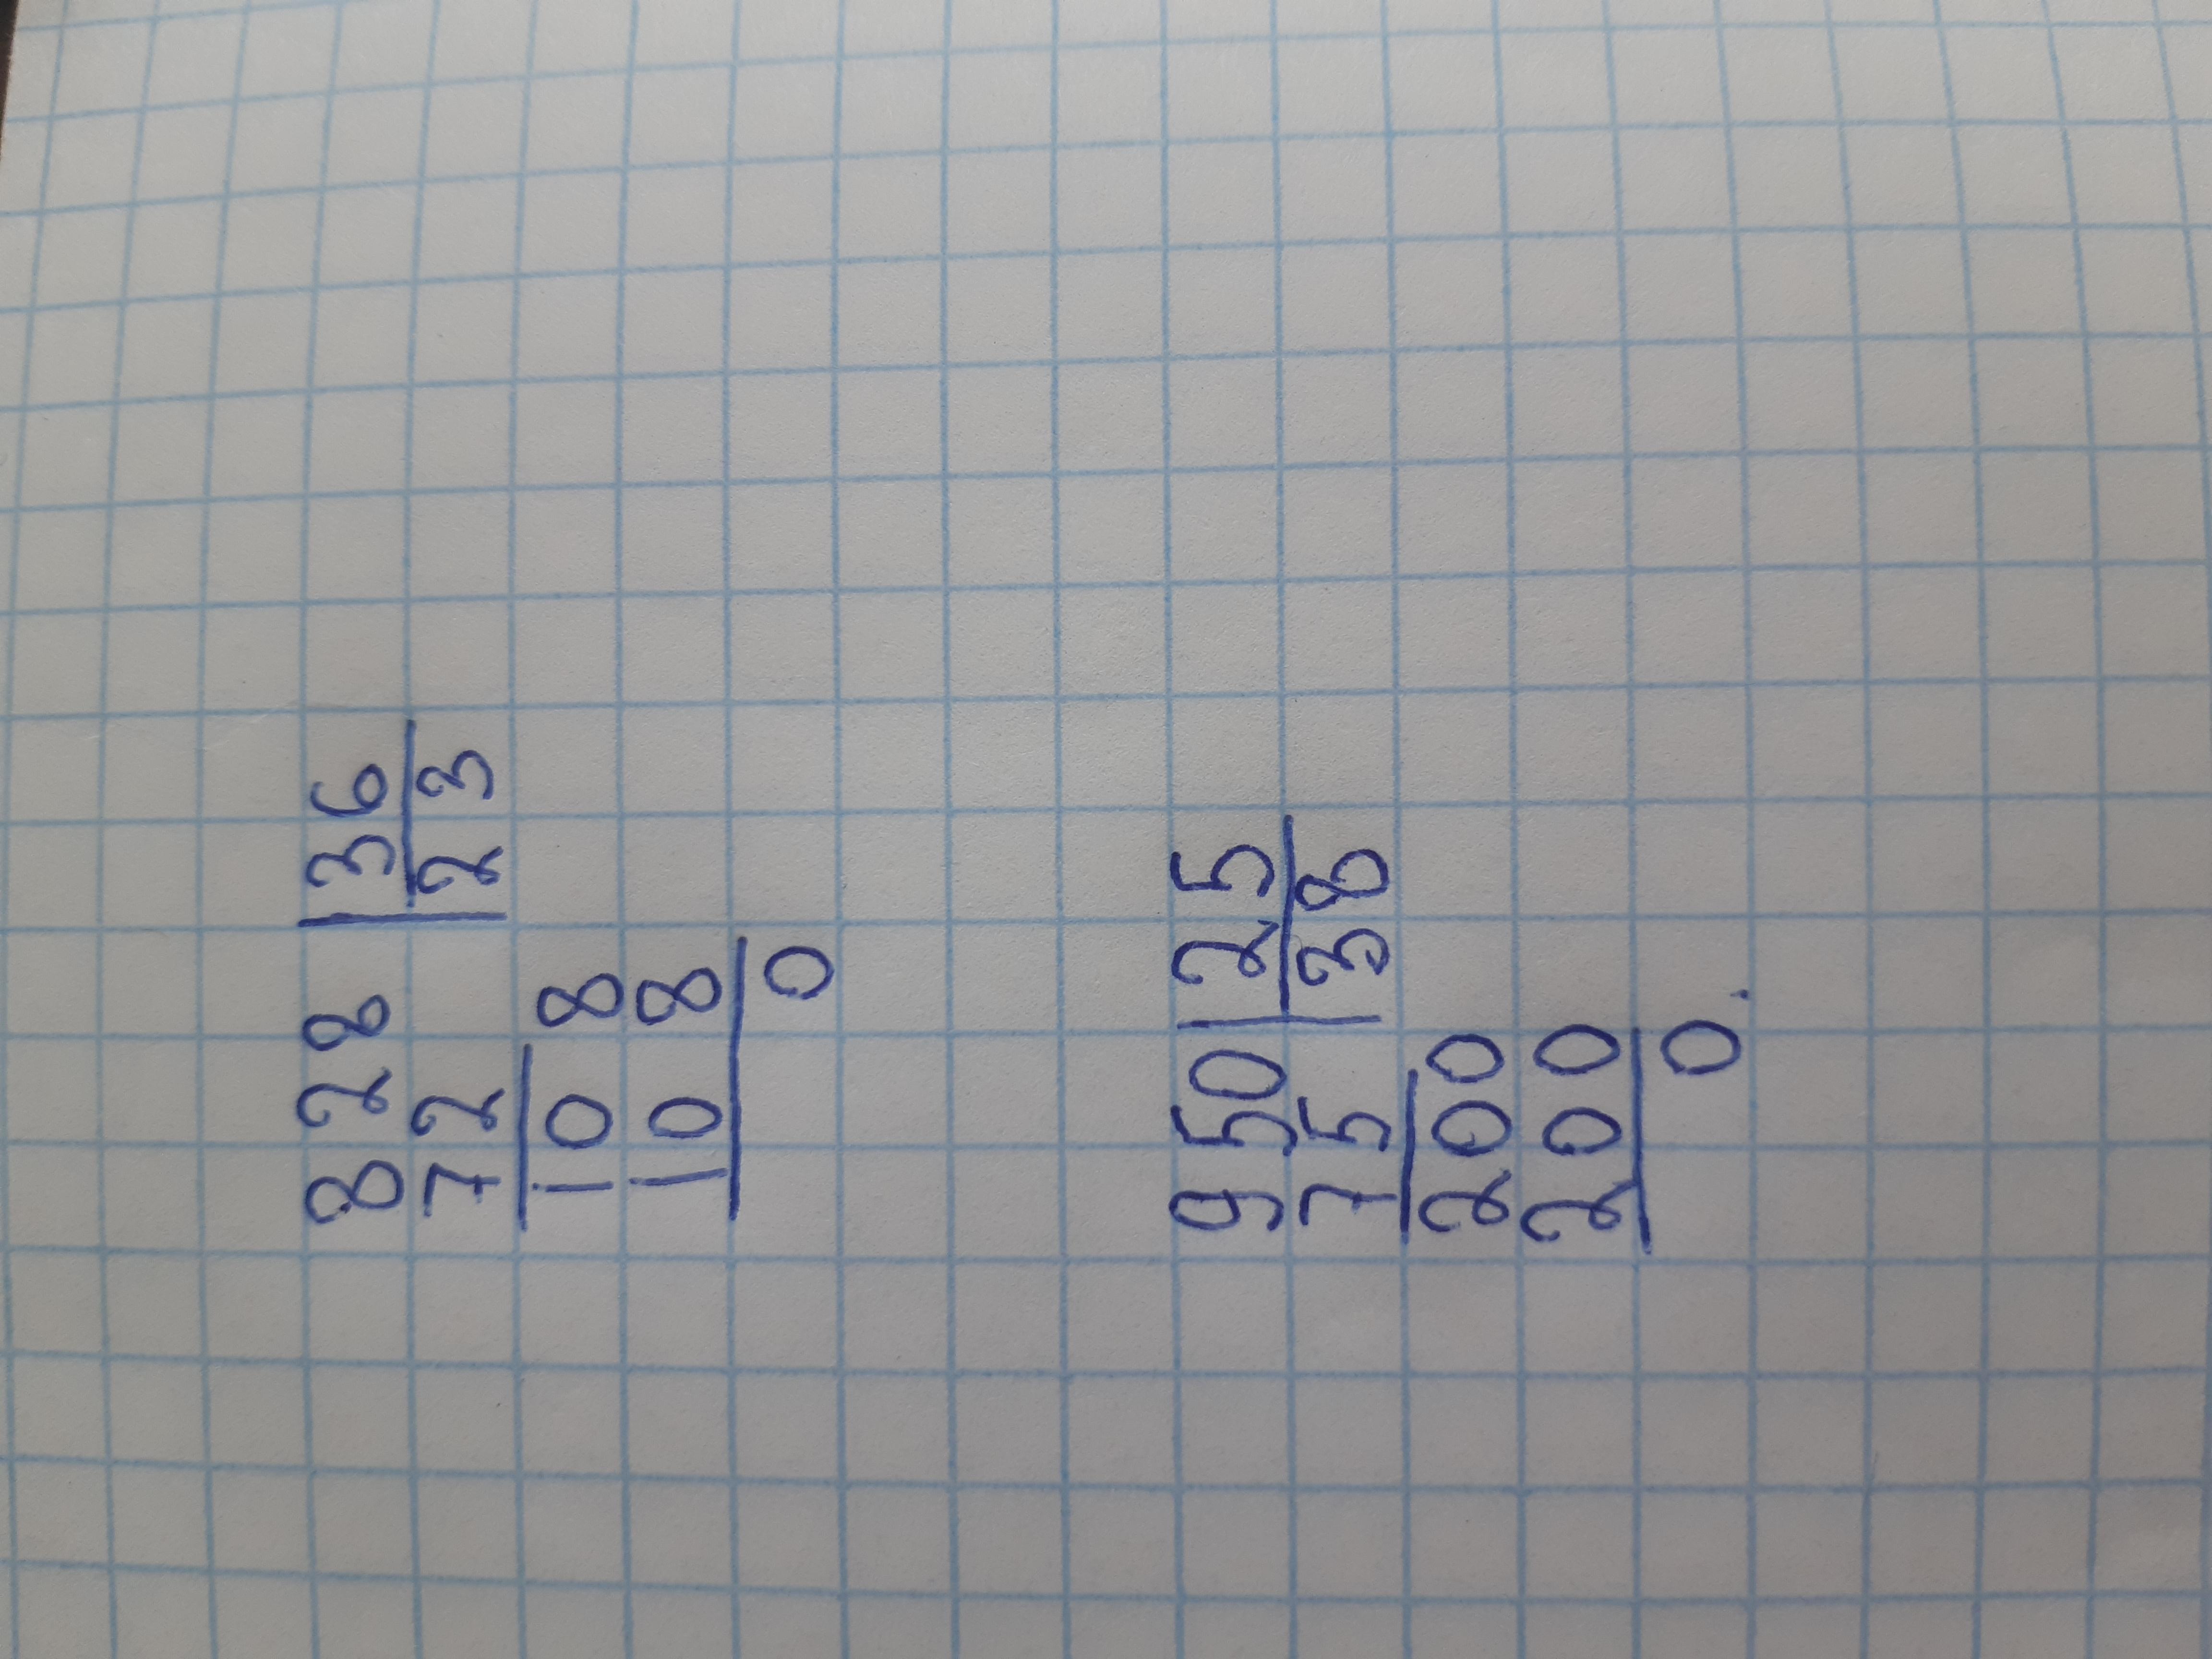 828 | 36
72 | 23
108
108
0
950 | 25
75 | 38
200
200
0